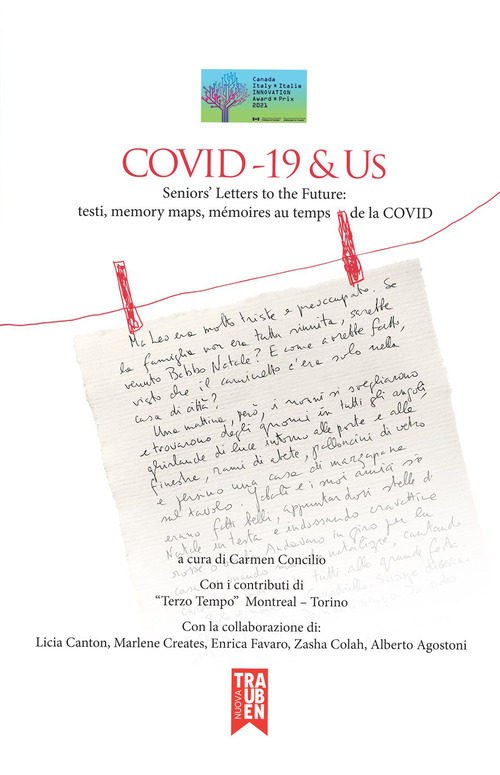 Canada
Italy Italia
INNOVATION
Award Prix
2021
COVID-19 & Us
Seniors’ Letters to the Future:
testi, memory maps, mémoires au temps de la COVID
Ma Leo era molto triste e preoccupato. Se
la famiglia non era tutta riunita, sarebbe
venuto Babbo Natale? E come avrebbe fatto,
visto che il caminetto c'era solo nella
casa di città?
Una mattina, però, i nonni si svegliarono
e trovarono degli gnomi in tutti gli angoli,
ghirlande di luce intorno alle porte e alle
finestre, rami di abete, palloncini di vetro
e persino una casa di marzapane
sul tavolo. e i suoi amici si
erano fatti belli, appuntandosi stelle di
Natale in testa e indossando cravattine
rosse Andavano in giro per la
natalizie, cantando
tutti alla grande festa
a cura di Carmen Concilio
Con i contributi di
“Terzo Tempo” Montreal – Torino
Con la collaborazione di:
Licia Canton, Marlene Creates, Enrica Favaro, Zasha Colah, Alberto Agostoni
NUOVA
TRA
UB
EN